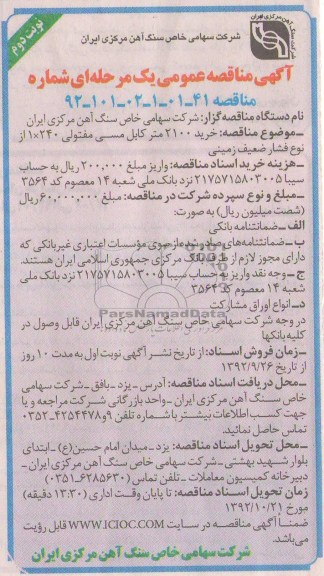 نوبت دوم
شرکت سهامی خاص سنگ آهن مرکزی ایران
آگهی مناقصه عمومی یک مرحله‌ای شماره
مناقصه ۴۱-۰۱-۱-۰۲-۱۰۱-۹۲
نام دستگاه مناقصه‌گزار: شرکت سهامی خاص سنگ آهن مرکزی ایران
-موضوع مناقصه: خرید ۲۱۰۰ متر کابل مسی مفتولی ۲۴۰×۱ از
نوع فشار ضعیف زمینی
-هزینه خرید اسناد مناقصه: واریز مبلغ ۲۰۰,۰۰۰ ریال به حساب
سیبا ۲۱۷۵۷۱۵۸۰۳۰۰۵ نزد بانک ملی شعبه ۱۴ معصوم کد ۳۵۶۴
-مبلغ و نوع سپرده شرکت در مناقصه: مبلغ ۶۰,۰۰۰,۰۰۰ ریال
(شصت میلیون ریال) به صورت:
الف-ضمانتنامه بانکی
ب-ضمانتنامه‌های صادر شده از سوی مؤسسات اعتباری غیربانکی که
دارای مجوز لازم از طرف بانک مرکزی جمهوری اسلامی ایران هستند.
ج-وجه نقد واریز به حساب سیبا ۲۱۷۵۷۱۵۸۰۳۰۰۵ نزد بانک ملی
شعبه ۱۴ معصوم کد ۳۵۶۴
د-انواع اوراق مشارکت
در وجه شرکت سهامی خاص سنگ آهن مرکزی ایران قابل وصول در
کلیه بانکها
-زمان فروش اسناد: از تاریخ نشر آگهی نوبت اول به مدت ۱۰ روز
از تاریخ ۱۳۹۲/۹/۲۶
-محل دریافت اسناد مناقصه: آدرس-یزد-بافق-شرکت سهامی
خاص سنگ آهن مرکزی ایران-واحد بازرگانی شرکت مراجعه و یا
جهت کسب اطلاعات بیشتر با شماره تلفن ۹و۴۲۵۴۴۷۸-۰۳۵۲
تماس حاصل نمائید.
-محل تحویل اسناد مناقصه: یزد-میدان امام حسین(ع)-ابتدای
بلوار شهید بهشتی-شرکت سهامی خاص سنگ آهن مرکزی ایران-
دبیرخانه کمیسیون معاملات-تلفن تماس (۶۲۸۵۶۳۰-۰۳۵۱)
زمان تحویل اسناد مناقصه: تا پایان وقت اداری (۱۳:۳۰ دقیقه)
مورخ ۱۳۹۲/۱۰/۲۱
ضمناً آگهی مناقصه در سایت WWW.ICIOC.COM قابل رؤیت
می‌باشد.
شرکت سهامی خاص سنگ آهن مرکزی ایران
ParsNamadData